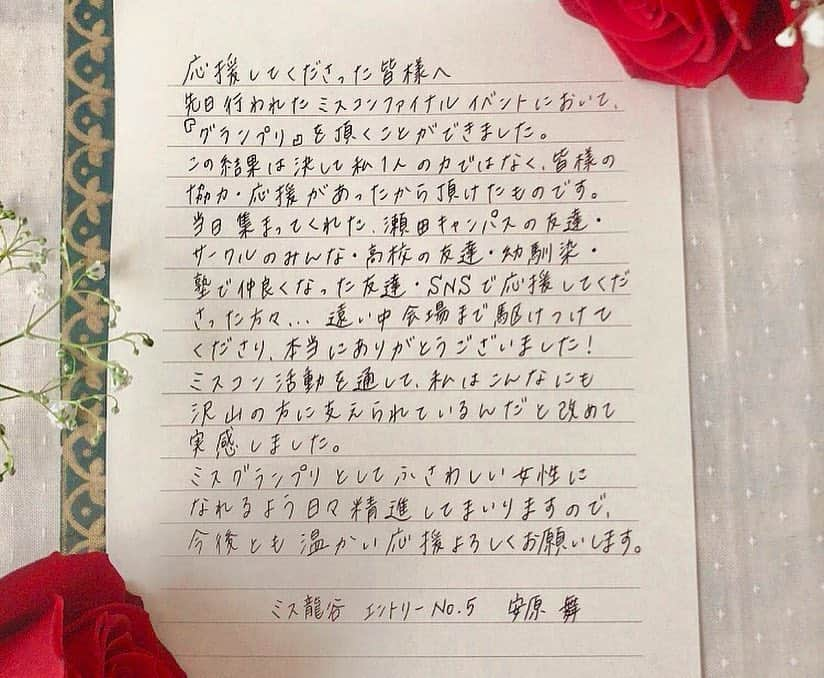 応援してくださった皆様へ
先日行われたミスコンファイナルイベントにおいて、
『グランプリ』を頂くことができました。
この結果は決して私1人の力ではなく、皆様の
協力・応援があったから頂けたものです。
当日集まってくれた、瀬田キャンパスの友達・
サークルのみんな・高校の友達・幼馴染・
塾で仲良くなった友達・SNSで応援してくだ
さった方々... 遠い中会場まで駆けつけて
くださり、本当にありがとうございました!
ミスコン活動を通して、私はこんなにも
沢山の方に支えられているんだと改めて
実感しました。
ミスグランプリとしてふさわしい女性に
なれるよう日々精進してまいりますので、
今後とも温かい応援よろしくお願いします。
ミス龍谷 エントリーNo.5 安原 舞